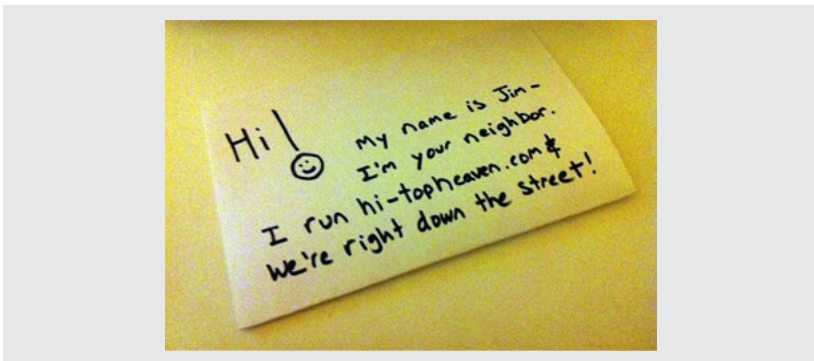 Hi!
My name is Jim-
I'm your neighbor.
I run hi-topheaven.com &
we're right down the street!